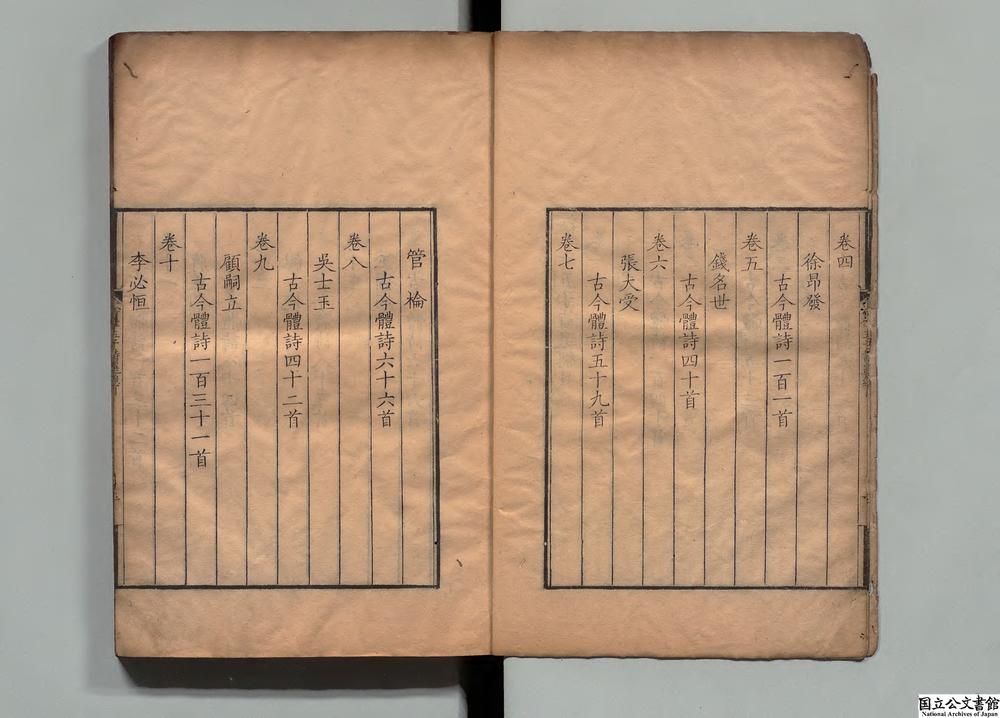 卷四
徐昂發
古今體詩一百一首
卷五
錢名世
古今體詩四十首
卷六
張大受
古今體詩五十九首
卷七
管棆
古今體詩六十六首
卷八
吳士玉
古今體詩四十二首
卷九
顧嗣立
古今體詩一百三十一首
卷十
李必恒
国立公文書館
National Archives of Japan